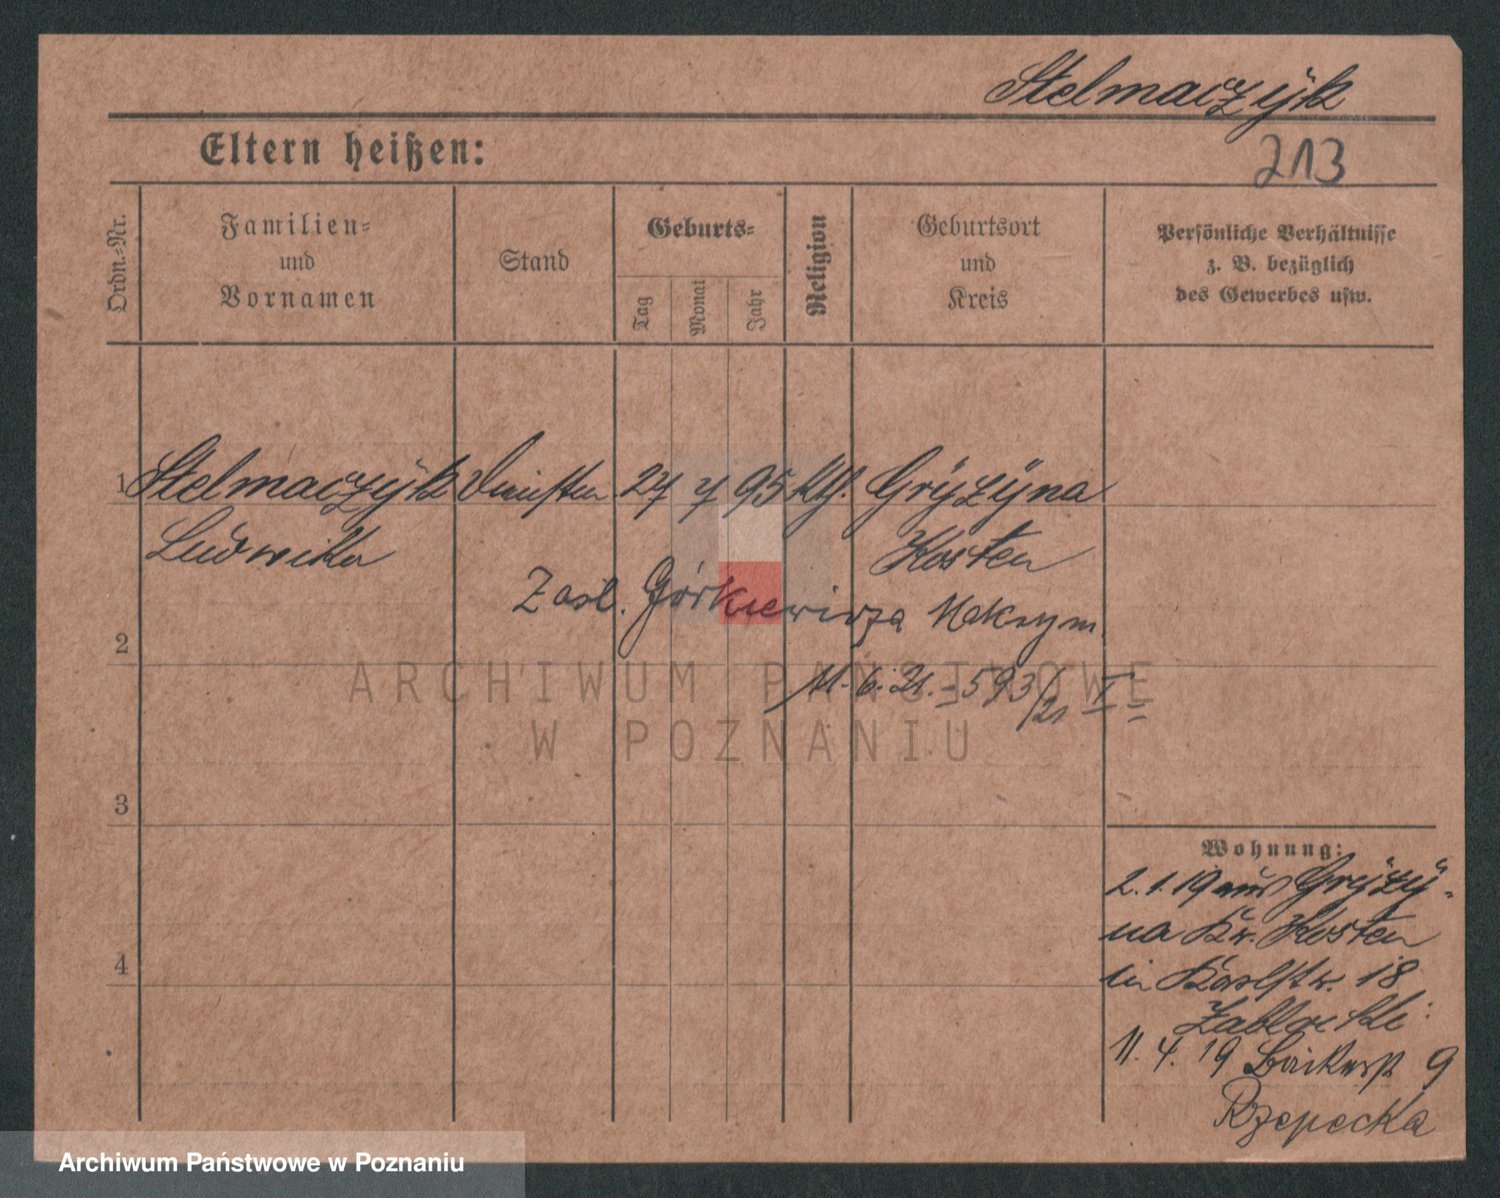 Stelmaczÿk
213
Eltern heißen:
Ordn.=Nr.
Familien=
und
Vornamen
Stand
Geburts=
Tag
Monat
Jahr
Religion
Geburtsort
und
Kreis
Persönliche Verhältnisse
z. B. bezüglich
des Gewerbes usw.
1 Stelmaczÿk 27 7 95 Kth. Grÿzÿna
Ludwika Kosten
Zaśl. Górkiewicza Maksym.
11. 6. 21. = 593/21 I
2
ARCHIWUM PAŃSTWOWE
W POZNANIU
3
4
Wohnung:
2. 1. 19 aus Grÿzÿ-
na Kr. Kosten
in Karlstr. 18
Zablocki
11. 4. 19 Bäckerst 9
Rzepecka
Archiwum Państwowe w Poznaniu